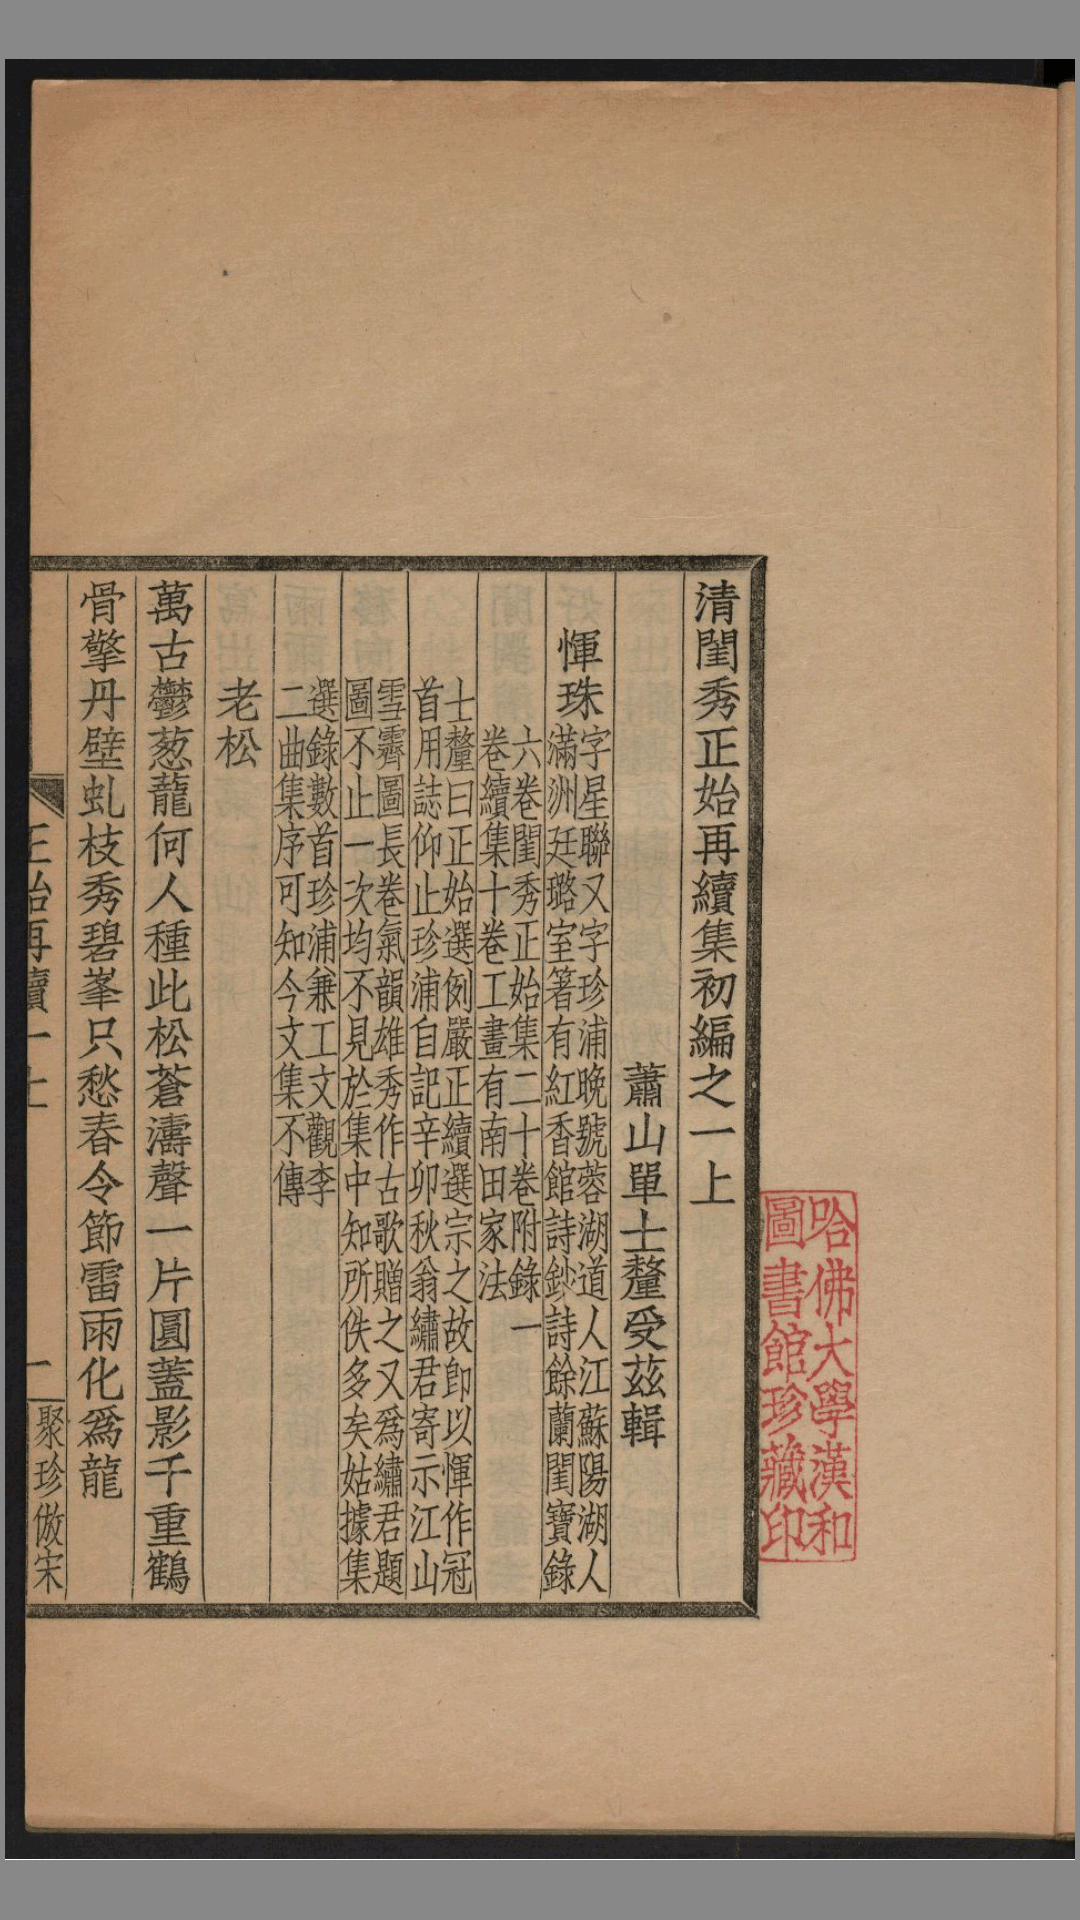 清閨秀正始再續集初編之一上
蕭山單士釐受茲輯
惲珠
字星聯又字珍浦晚號蓉湖道人江蘇陽湖人
滿洲廷璐室箸有紅香館詩鈔詩餘蘭閨寶錄
六卷閨秀正始集二十卷附錄一
卷續集十卷工畫有南田家法
士釐曰正始選例嚴正續選宗之故卽以惲作冠
首用誌仰止珍浦自記辛卯秋翁繡君寄示江山
雪霽圖長卷氣韻雄秀作古歌贈之又爲繡君題
圖不止一次均不見於集中知所佚多矣姑據集
選錄數首珍浦兼工文觀李
二曲集序可知今文集不傳
老松
萬古鬱葱蘢何人種此松蒼濤聲一片圓蓋影千重鶴
骨擎丹壁虬枝秀碧峯只愁春令節雷雨化爲龍
正始再續一上
一
聚珍倣宋
哈佛大學漢和
圖書館珍藏印